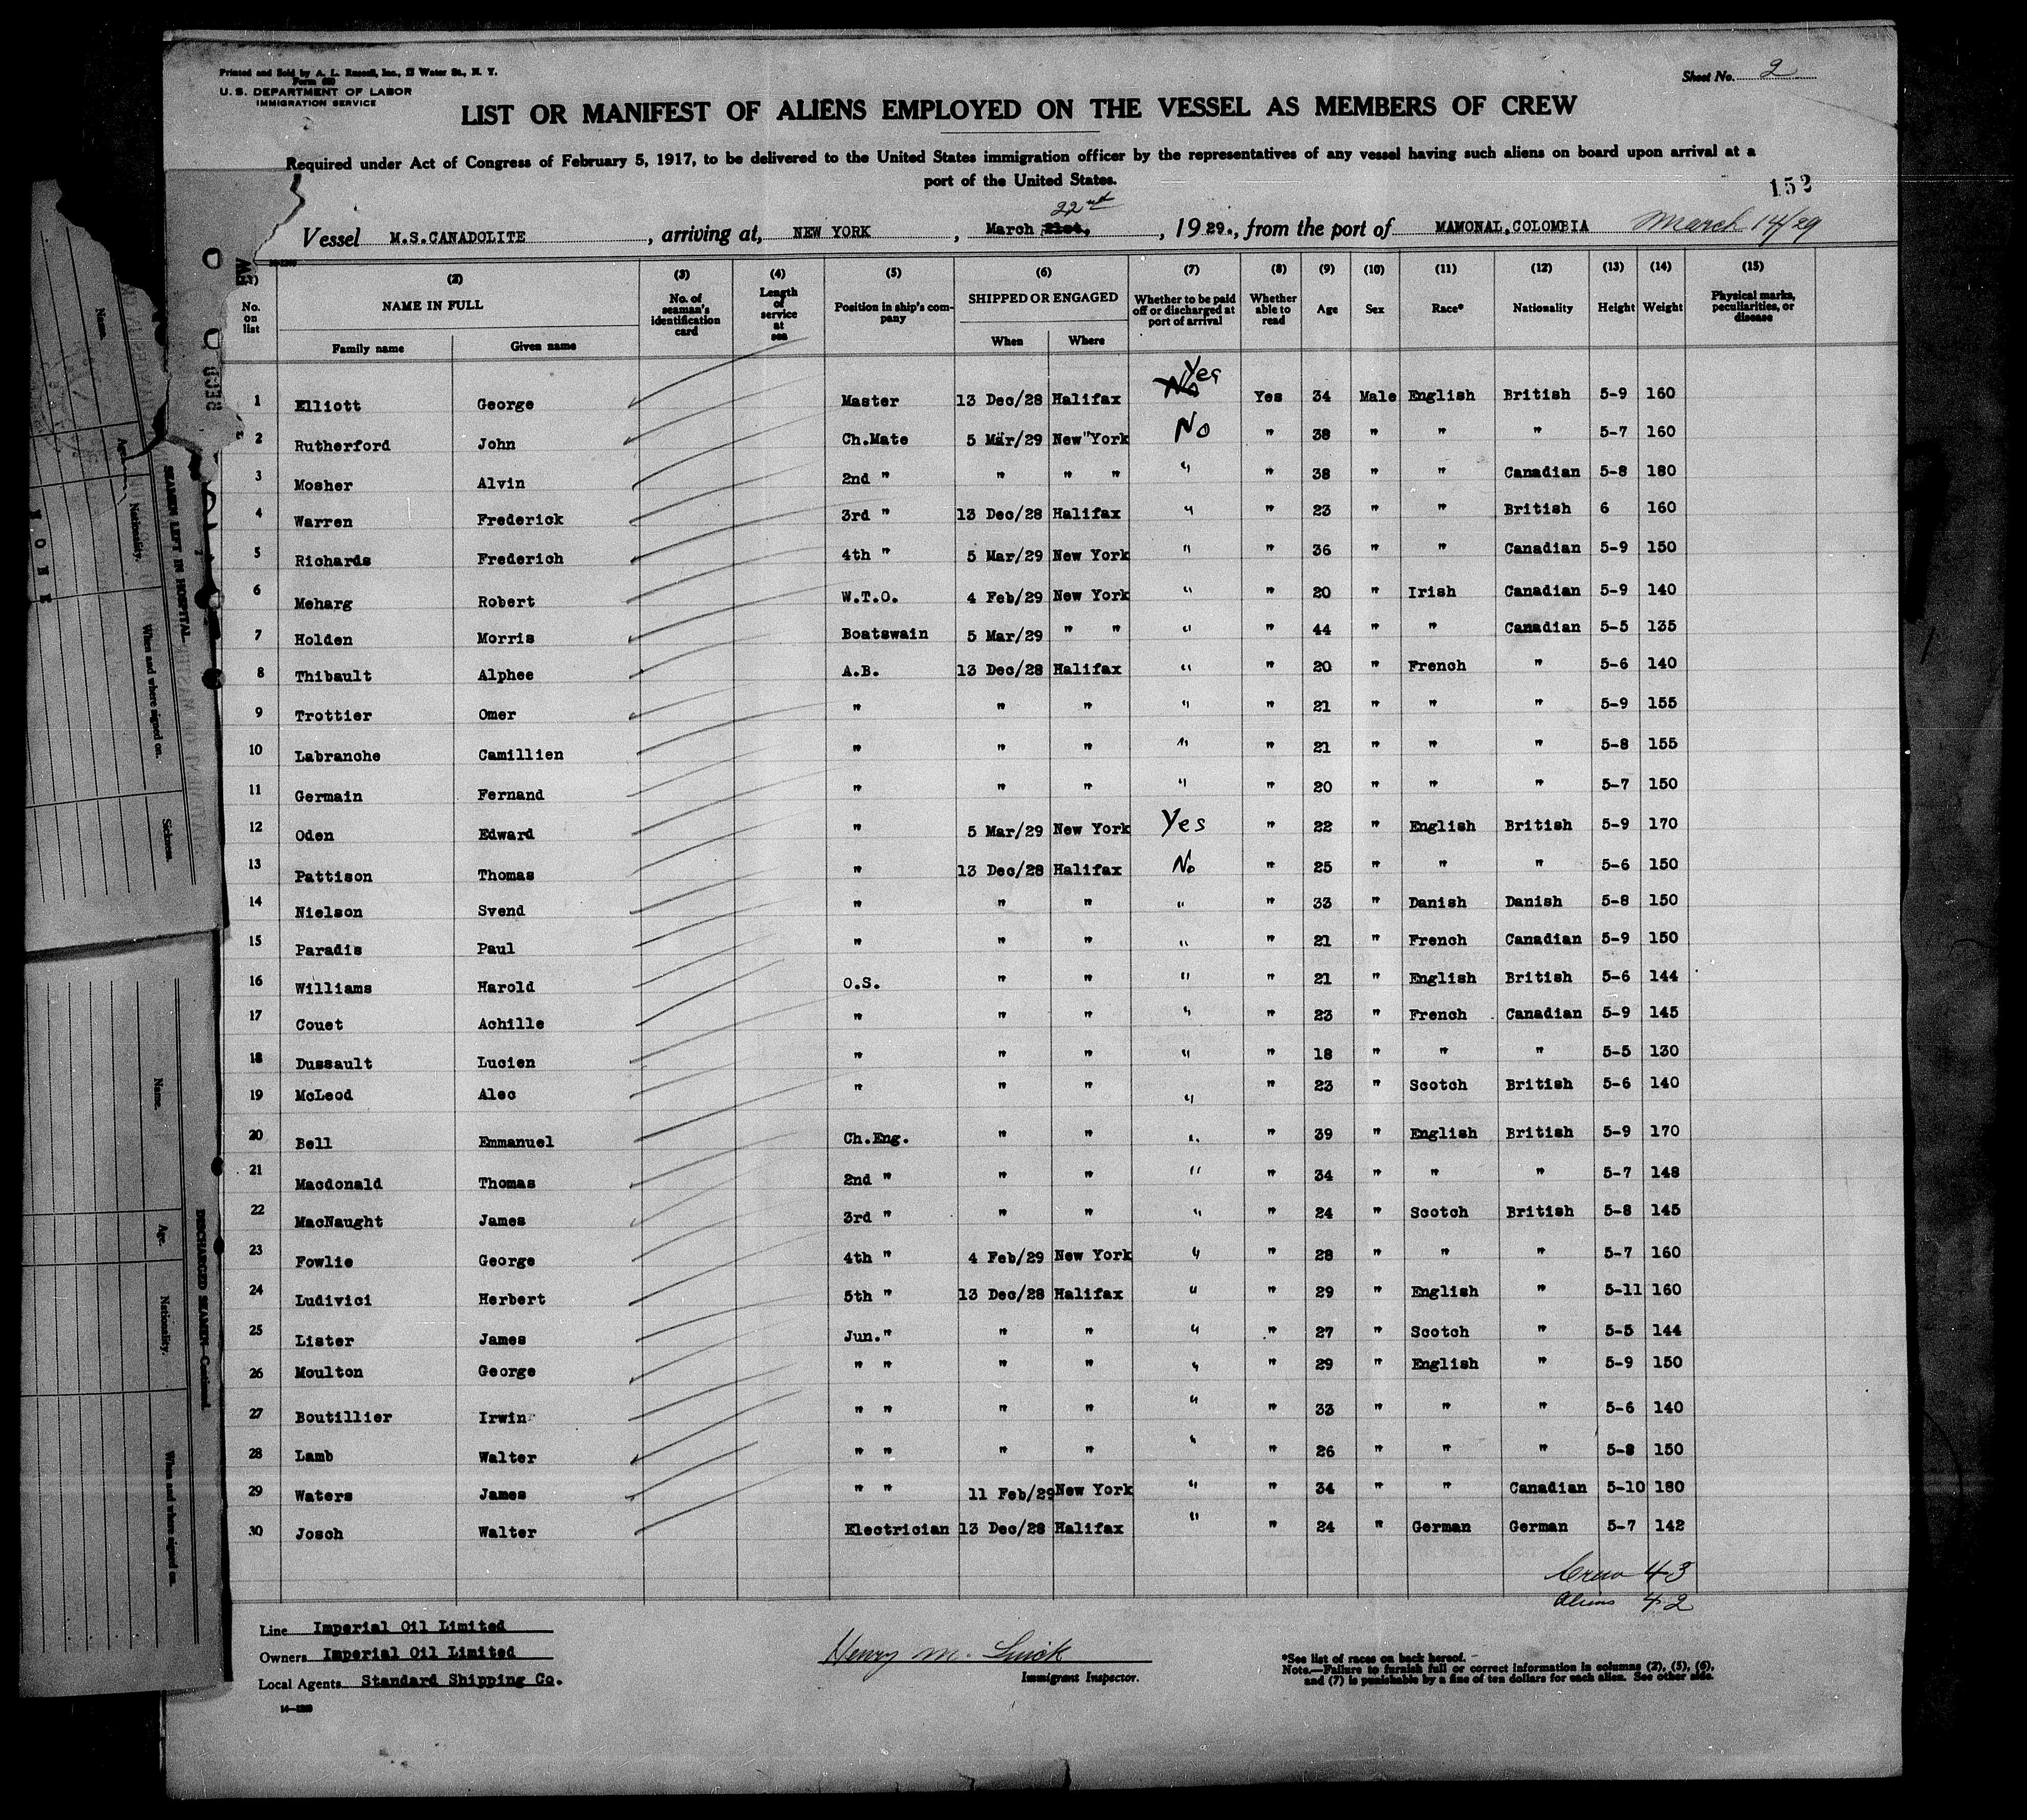 Printed and Sold by A. L. Russell, Inc., Water St., N. Y.
Form
U. S. DEPARTMENT OF LABOR
IMMIGRATION SERVICE
Sheet No. 2
LIST OR MANIFEST OF ALIENS EMPLOYED ON THE VESSEL AS MEMBERS OF CREW
Required under Act of Congress of February 5, 1917, to be delivered to the United States immigration officer by the representatives of any vessel having such aliens on board upon arrival at a
port of the United States.
152
22nd
Vessel M.S.CANADOLITE, arriving at, NEW YORK, March 21st,, 1929., from the port of MAMONAL,COLOMBIA March 14/29
(2) (3) (4) (5) (6) (7) (8) (9) (10) (11) (12) (13) (14) (15)
No. on list NAME IN FULL No. of seaman's identification card Length of service at sea Position in ship's company SHIPPED OR ENGAGED Whether to be paid off or discharged at port of arrival Whether able to read Age Sex Race* Nationality Height Weight Physical marks, peculiarities, or disease
Family name Given name When Where
Yes
1 Elliott George Master 13 Dec/28 Halifax No Yes 34 Male English British 5-9 160
2 Rutherford John Ch.Mate 5 Mar/29 New York No " 38 " " " 5-7 160
3 Mosher Alvin 2nd " " " " " " 38 " " Canadian 5-8 180
4 Warren Frederick 3rd " 13 Dec/28 Halifax " " 23 " " British 6 160
5 Richards Frederich 4th " 5 Mar/29 New York " " 36 " " Canadian 5-9 150
6 Meharg Robert W.T.O. 4 Feb/29 New York " " 20 " Irish Canadian 5-9 140
7 Holden Morris Boatswain 5 Mar/29 " " " " 44 " " Canadian 5-5 135
8 Thibault Alphee A.B. 13 Dec/28 Halifax " " 20 " French " 5-6 140
9 Trottier Omer " " " " " 21 " " " 5-9 155
10 Labranche Camillien " " " " " 21 " " " 5-8 155
11 Germain Fernand " " " " " 20 " " " 5-7 150
12 Oden Edward " 5 Mar/29 New York Yes " 22 " English British 5-9 170
13 Pattison Thomas " 13 Dec/28 Halifax No " 25 " " " 5-6 150
14 Nielson Svend " " " " " 33 " Danish Danish 5-8 150
15 Paradis Paul " " " " " 21 " French Canadian 5-9 150
16 Williams Harold O.S. " " " " 21 " English British 5-6 144
17 Couet Achille " " " " " 23 " French Canadian 5-9 145
18 Dussault Lucien " " " " " 18 " " " 5-5 130
19 McLeod Alec " " " " " 23 " Scotch British 5-6 140
20 Bell Emmanuel Ch.Eng. " " " " 39 " English British 5-9 170
21 Macdonald Thomas 2nd " " " " " 34 " " " 5-7 148
22 MacNaught James 3rd " " " " " 24 " Scotch British 5-8 145
23 Fowlie George 4th " 4 Feb/29 New York " " 28 " " " 5-7 160
24 Ludivici Herbert 5th " 13 Dec/28 Halifax " " 29 " English " 5-11 160
25 Lister James Jun." " " " " 27 " Scotch " 5-5 144
26 Moulton George " " " " " " 29 " English " 5-9 150
27 Boutillier Irwin " " " " " " 33 " " " 5-6 140
28 Lamb Walter " " " " " " 26 " " " 5-8 150
29 Waters James " " 11 Feb/29 New York " " 34 " " Canadian 5-10 180
30 Josch Walter Electrician 13 Dec/28 Halifax " " 24 " German German 5-7 142
Crew 43
Aliens 42
Line Imperial Oil Limited
Owners Imperial Oil Limited
Local Agents Standard Shipping Co.
Henry M.
Immigrant Inspector.
*See list of races on back hereof.
Note.—Failure to furnish full or correct information in columns (2), (5), (6),
and (7) is punishable by a fine of ten dollars for each alien. See other side.
Name.
Age.
Nationality.
When and where signed on.
Sickness.
SEAMEN LEFT IN HOSPITAL.
NONE
Name.
Age.
Nationality.
When and where signed on.
DISCHARGED SEAMEN—Continued.